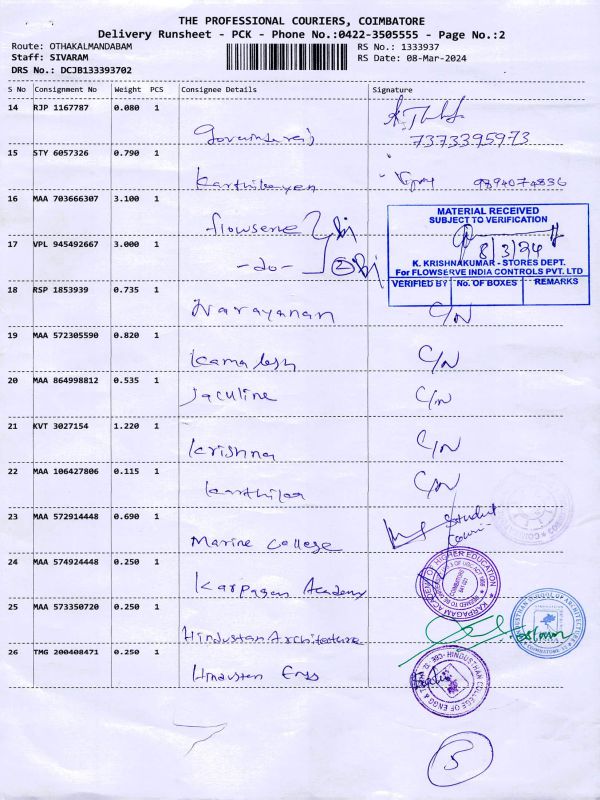 THE PROFESSIONAL COURIERS, COIMBATORE
Delivery Runsheet - PCK - Phone No.:0422-3505555 - Page No.:2
Route: OTHAKALMANDABAM
RS No.: 1333937
Staff: SIVARAM
RS Date: 08-Mar-2024
DRS No.: DCJB133393702
S No Consignment No Weight PCS Consignee Details Signature
14 RJP 1167787 0.080 1
7373395973
15 STY 6057326 0.790 1
Karthikeyen 9894074836
16 MAA 703666307 3.100 1
flowserve
MATERIAL RECEIVED
SUBJECT TO VERIFICATION
8/3/24
K. KRISHNAKUMAR - STORES DEPT.
For FLOWSERVE INDIA CONTROLS PVT. LTD
VERIFIED BY No. OF BOXES REMARKS
17 VPL 945492667 3.000 1
-do- 2
18 RSP 1853939 0.735 1
Narayanan C/N
19 MAA 572305590 0.820 1
Kamalesh C/N
20 MAA 864998812 0.535 1
Jaculine C/N
21 KVT 3027154 1.220 1
Krishna C/N
22 MAA 106427806 0.115 1
Karthika C/N
23 MAA 572914448 0.690 1
Marine College
24 MAA 574924448 0.250 1
Karpagam Academy
KARPAGAM ACADEMY OF HIGHER EDUCATION
25 MAA 573350720 0.250 1
Hindustan Architecture
26 TMG 200408471 0.250 1
Hindustan Engg